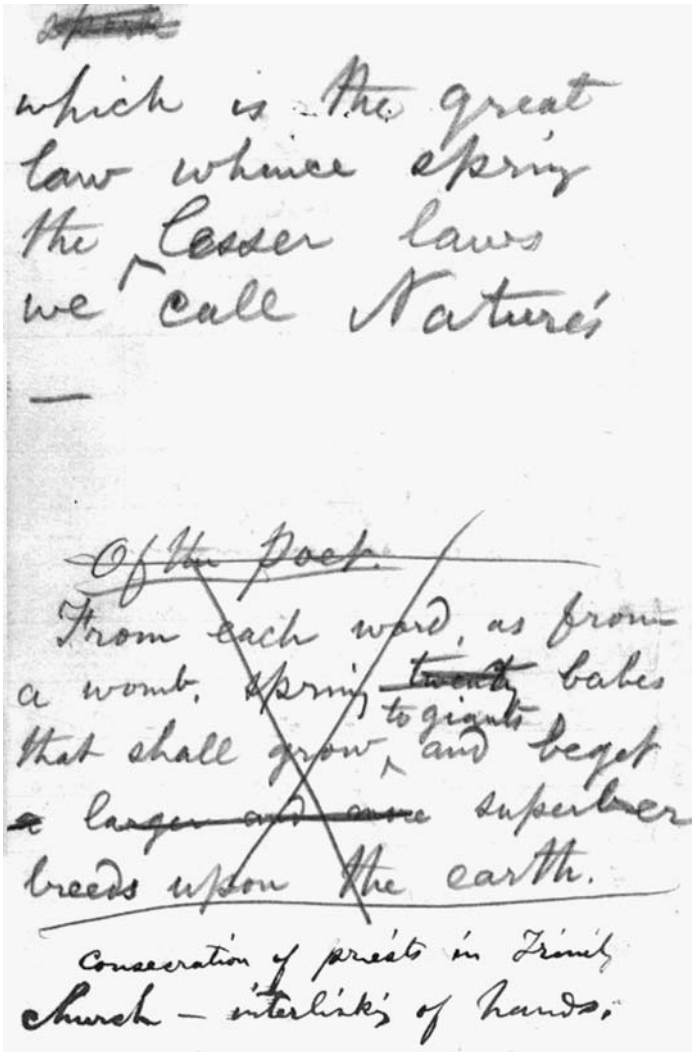 which is the great
law whence spring
the lesser laws
we call Nature's
—
Of the Poet.
From each word, as from
a womb, spring twenty babes
to giants
that shall grow, and beget
a larger and more superber
breeds upon the earth.
consecration of priests in Trinity
church — interlinking of hands.